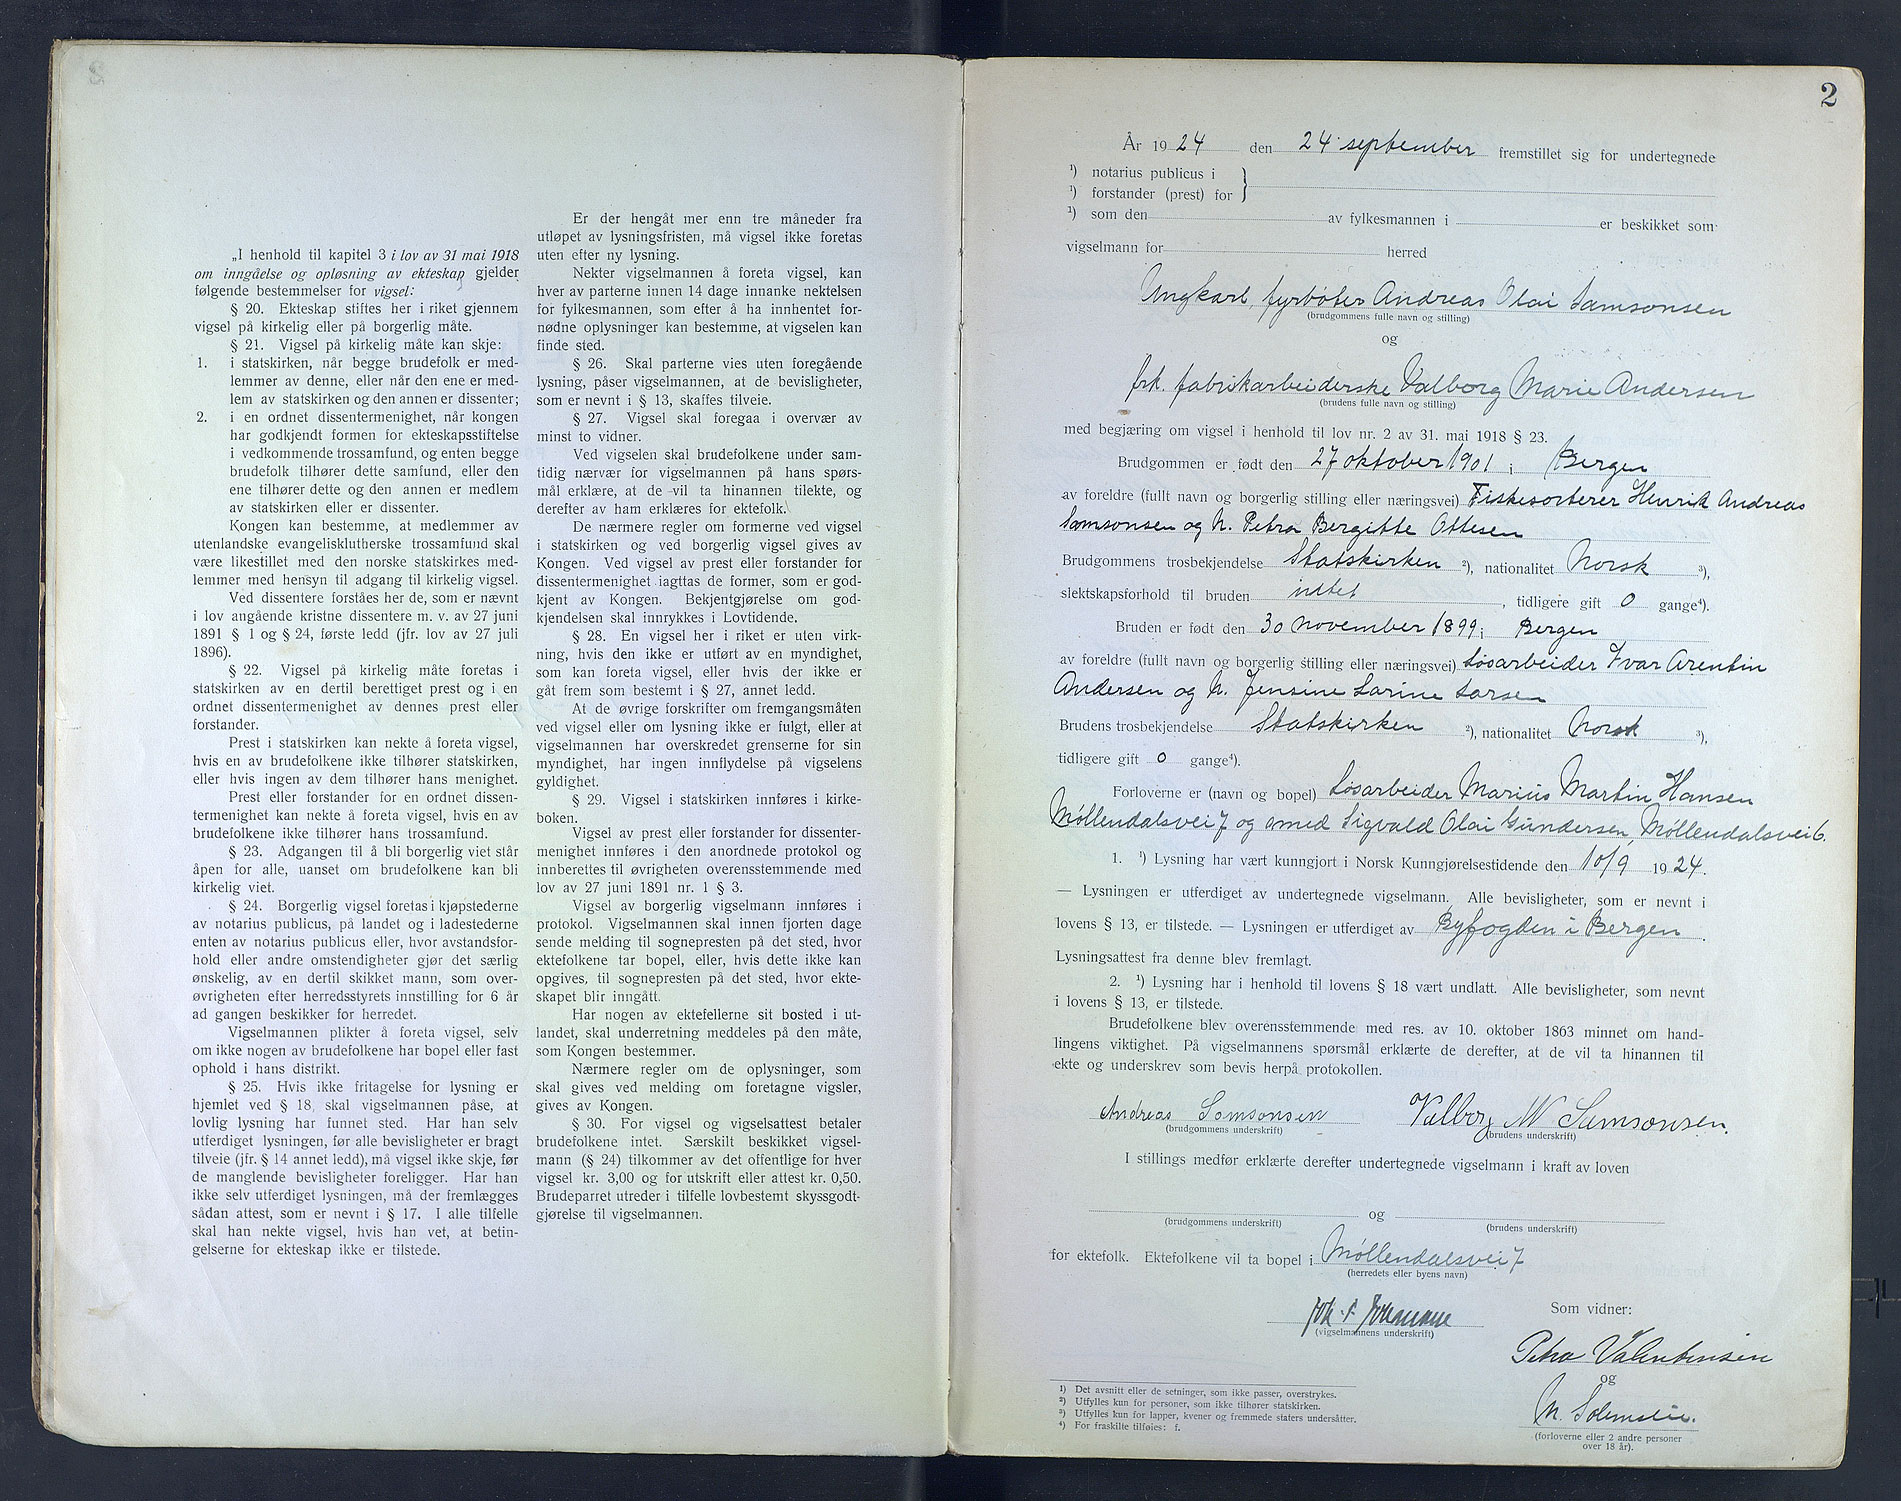 „I henhold til kapitel 3 i lov av 31 mai 1918
om inngåelse og opløsning av ekteskap gjelder
følgende bestemmelser for vigsel:
§ 20. Ekteskap stiftes her i riket gjennem
vigsel på kirkelig eller på borgerlig måte.
§ 21. Vigsel på kirkelig måte kan skje:
1. i statskirken, når begge brudefolk er med-
lemmer av denne, eller når den ene er med-
lem av statskirken og den annen er dissenter;
2. i en ordnet dissentermenighet, når kongen
har godkjendt formen for ekteskapsstiftelse
i vedkommende trossamfund, og enten begge
brudefolk tilhører dette samfund, eller den
ene tilhører dette og den annen er medlem
av statskirken eller er dissenter.
Kongen kan bestemme, at medlemmer av
utenlandske evangeliskluterske trossamfund skal
være likestillet med den norske statskirkes med-
lemmer med hensyn til adgang til kirkelig vigsel.
Ved dissentere forståes her de, som er nævnt
i lov angående kristne dissentere m. v. av 27 juni
1891 § 1 og § 24, første ledd (jfr. lov av 27 juli
1896).
§ 22. Vigsel på kirkelig måte foretas i
statskirken av en dertil berettiget prest og i en
ordnet dissentermenighet av dennes prest eller
forstander.
Prest i statskirken kan nekte å foreta vigsel,
hvis en av brudefolkene ikke tilhører statskirken,
eller hvis ingen av dem tilhører hans menighet.
Prest eller forstander for en ordnet dissen-
termenighet kan nekte å foreta vigsel, hvis en av
brudefolkene ikke tilhører hans trossamfund.
§ 23. Adgangen til å bli borgerlig viet står
åpen for alle, uanset om brudefolkene kan bli
kirkelig viet.
§ 24. Borgerlig vigsel foretas i kjøpstederne
av notarius publicus, på landet og i ladestederne
enten av notarius publicus eller, hvor avstandsfor-
hold eller andre omstendigheter gjør det særlig
ønskelig, av en dertil skikket mann, som over-
øvrigheten efter herredsstyrets innstilling for 6 år
ad gangen beskikker for herredet.
Vigselmannen plikter å foreta vigsel, selv
om ikke nogen av brudefolkene har bopel eller fast
ophold i hans distrikt.
§ 25. Hvis ikke fritagelse for lysning er
hjemlet ved § 18, skal vigselmannen påse, at
lovlig lysning har funnet sted. Har han selv
utferdiget lysningen, før alle bevisligheter er bragt
tilveie (jfr. § 14 annet ledd), må vigsel ikke skje, før
de manglende bevisligheter foreligger. Har han
ikke selv utferdiget lysningen, må der fremlægges
sådan attest, som er nevnt i § 17. I alle tilfelle
skal han nekte vigsel, hvis han vet, at betin-
gelserne for ekteskap ikke er tilstede.
Er der hengåt mer enn tre måneder fra
utløpet av lysningsfristen, må vigsel ikke foretas
uten efter ny lysning.
Nekter vigselmannen å foreta vigsel, kan
hver av parterne innen 14 dage innanke nektelsen
for fylkesmannen, som efter å ha innhentet for-
nødne oplysninger kan bestemme, at vigselen kan
finde sted.
§ 26. Skal parterne vies uten foregående
lysning, påser vigselmannen, at de bevisligheter,
som er nevnt i § 13, skaffes tilveie.
§ 27. Vigsel skal foregaa i overvær av
minst to vidner.
Ved vigselen skal brudefolkene under sam-
tidig nærvær for vigselmannen på hans spørs-
mål erklære, at de vil ta hinannen tilekte, og
derefter av ham erklæres for ektefolk.
De nærmere regler om formerne ved vigsel
i statskirken og ved borgerlig vigsel gives av
Kongen. Ved vigsel av prest eller forstander for
dissentermenighet iagttas de former, som er god-
kjent av Kongen. Bekjentgjørelse om god-
kjendelsen skal innrykkes i Lovtidende.
§ 28. En vigsel her i riket er uten virk-
ning, hvis den ikke er utført av en myndighet,
som kan foreta vigsel, eller hvis der ikke er
gåt frem som bestemt i § 27, annet ledd.
At de øvrige forskrifter om fremgangsmåten
ved vigsel eller om lysning ikke er fulgt, eller at
vigselmannen har overskredet grenserne for sin
myndighet, har ingen innflydelse på vigselens
gyldighet.
§ 29. Vigsel i statskirken innføres i kirke-
boken.
Vigsel av prest eller forstander for dissenter-
menighet innføres i den anordnede protokol og
innberettes til øvrigheten overensstemmende med
lov av 27 juni 1891 nr. 1 § 3.
Vigsel av borgerlig vigselmann innføres i
protokol. Vigselmannen skal innen fjorten dage
sende melding til sognepresten på det sted, hvor
ektefolkene tar bopel, eller, hvis dette ikke kan
opgives, til sognepresten på det sted, hvor ekte-
skapet blir inngått.
Har nogen av ektefellerne sit bosted i ut-
landet, skal underretning meddeles på den måte,
som Kongen bestemmer.
Nærmere regler om de oplysninger, som
skal gives ved melding om foretagne vigsler,
gives av Kongen.
§ 30. For vigsel og vigselsattest betaler
brudefolkene intet. Særskilt beskikket vigsel-
mann (§ 24) tilkommer av det offentlige for hver
vigsel kr. 3,00 og for utskrift eller attest kr. 0,50.
Brudeparret utreder i tilfelle lovbestemt skyssgodt-
gjørelse til vigselmannen.
2
År 1924 den 24 september fremstillet sig for undertegnede
¹) notarius publicus i
¹) forstander (prest) for
¹) som den av fylkesmannen i er beskikket som
vigselmann for herred
Ungkarl, fyrbøter Andreas Olai Samsonsen
(brudgommens fulle navn og stilling)
og
frk. fabrikarbeiderske Valborg Marie Andersen
(brudens fulle navn og stilling)
med begjæring om vigsel i henhold til lov nr. 2 av 31. mai 1918 § 23.
Brudgommen er født den 27 oktober 1901 i Bergen
av foreldre (fullt navn og borgerlig stilling eller næringsvei) Fiskesorterer Henrik Andreas
Samsonsen og h. Petra Bergitte Ottesen
Brudgommens trosbekjendelse Statskirken ²), nationalitet Norsk ³),
slektskapsforhold til bruden intet, tidligere gift 0 gange⁴).
Bruden er født den 30 november 1899 i Bergen
av foreldre (fullt navn og borgerlig stilling eller næringsvei) Løsarbeider Ivar Arentin
Andersen og h. Jensine Larine Larsen
Brudens trosbekjendelse Statskirken ²), nationalitet Norsk ³),
tidligere gift 0 gange⁴).
Forloverne er (navn og bopel) Løsarbeider Marius Martin Hansen
Møllendalsvei 7 og smed Sigvald Olai Gundersen, Møllendalsvei 6.
1. ¹) Lysning har vært kunngjort i Norsk Kunngjørelsestidende den 10/9 1924.
— Lysningen er utferdiget av undertegnede vigselmann. Alle bevisligheter, som er nevnt i
lovens § 13, er tilstede. — Lysningen er utferdiget av Byfogden i Bergen.
Lysningsattest fra denne blev fremlagt.
2. ¹) Lysning har i henhold til lovens § 18 vært undlatt. Alle bevisligheter, som nevnt
i lovens § 13, er tilstede.
Brudefolkene blev overensstemmende med res. av 10. oktober 1863 minnet om hand-
lingens viktighet. På vigselmannens spørsmål erklærte de derefter, at de vil ta hinannen til
ekte og underskrev som bevis herpå protokollen.
Andreas Samsonsen Valborg M Samsonsen.
(brudgommens underskrift) (brudens underskrift)
I stillings medfør erklærte derefter undertegnede vigselmann i kraft av loven
og
(brudgommens underskrift) (brudens underskrift)
for ektefolk. Ektefolkene vil ta bopel i Møllendalsvei 7
(herredets eller byens navn)
Som vidner:
(vigselmannens underskrift)
Petra Valentinsen
og
(forloverne eller 2 andre personer
over 18 år).
¹) Det avsnitt eller de setninger, som ikke passer, overstrykes.
²) Utfylles kun for personer, som ikke tilhører statskirken.
³) Utfylles kun for lapper, kvener og fremmede staters undersåtter.
⁴) For fraskilte tilføies: f.